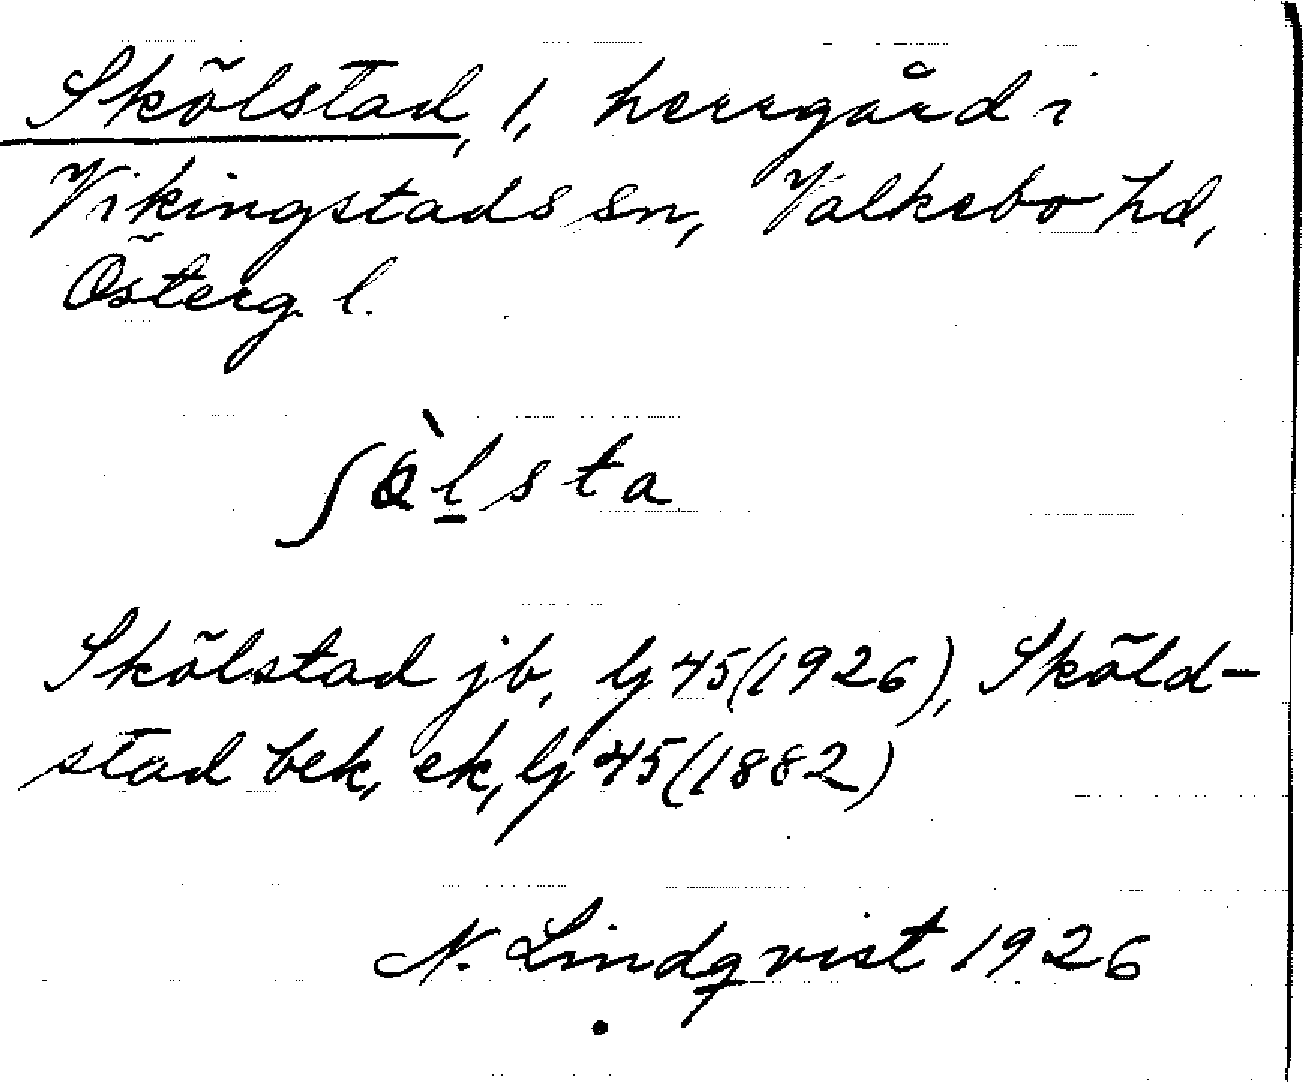 Skölstad, 1, herrgård i
Vikingstads sn, Valkebo hd,
Österg. l.
ʃɵ̀l̠sta
Skölstad jb, lj 45 (1926), Sköld-
stad bek, ek, lj 45 (1882)
N. Lindqvist 1926